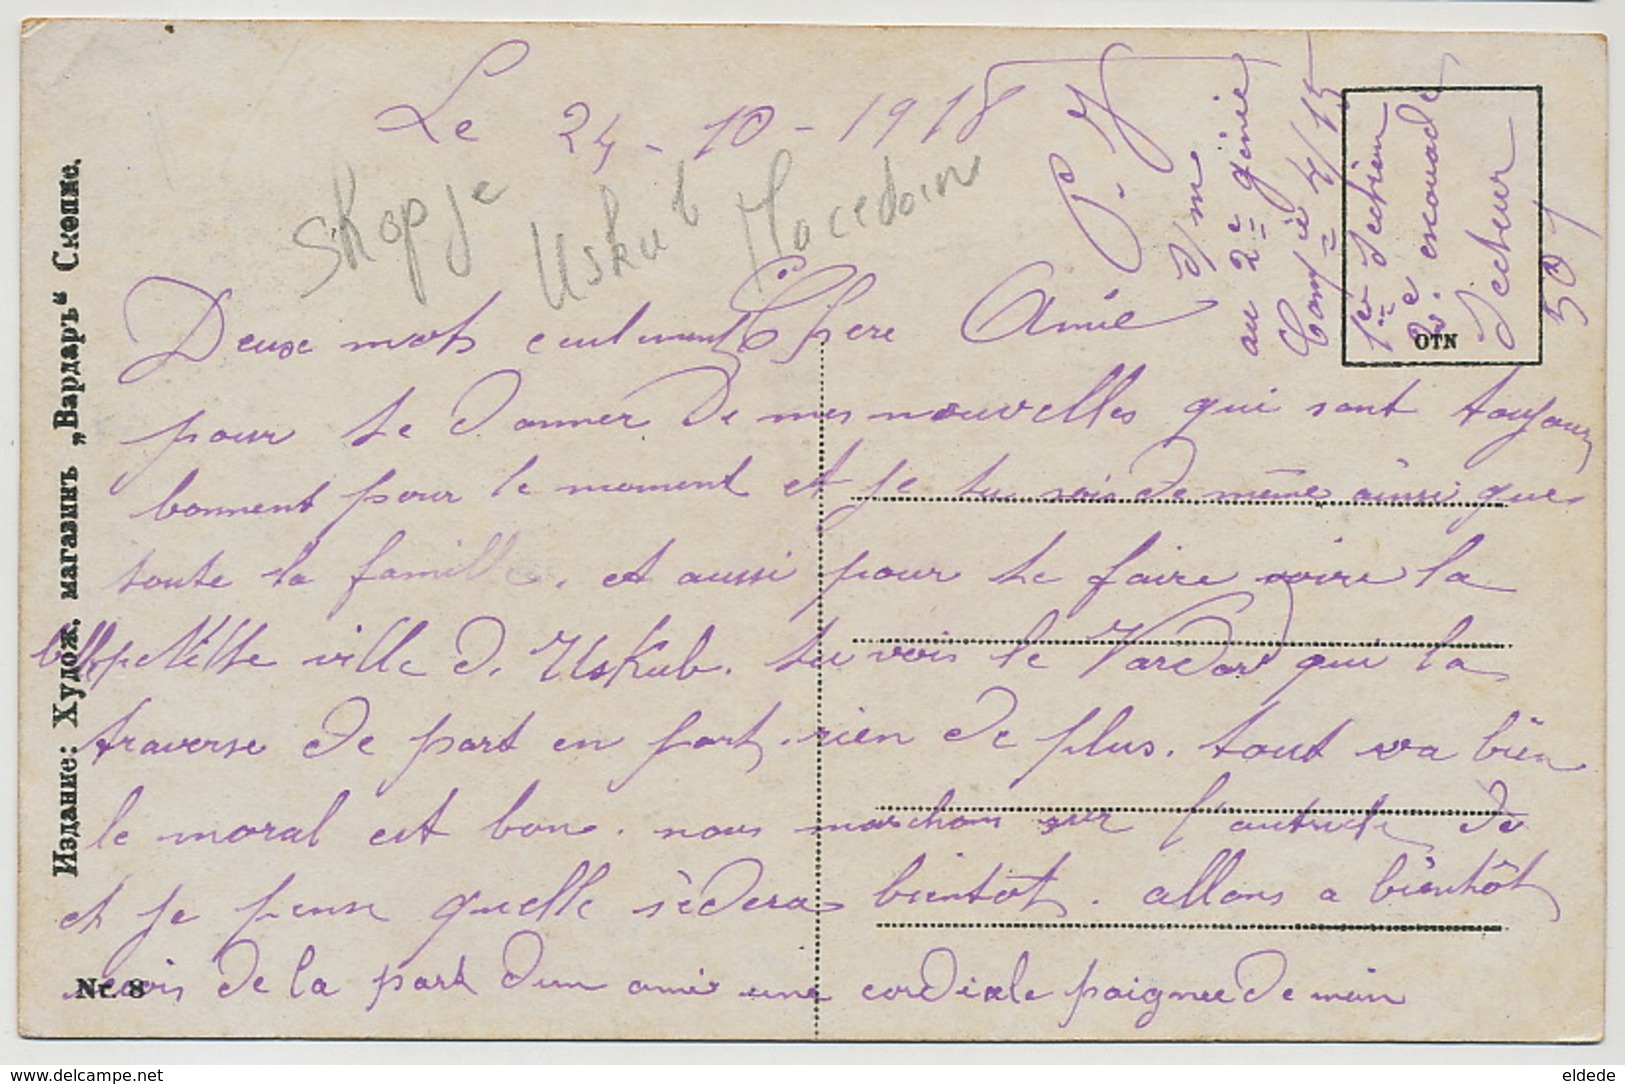 Le 24-10-1918
Skopje Uskub Macedoin
P. Y.
s/m
au 2e génie
Comp ie 4/15
1ere Section
2e escouade
Secteur
501
OTN
Издание: Худож. магазинъ „Вардаръ“ Скопие.
Deuxe mots ceulement Chere Amie
pour te donner de mes nouvelles qui sont toujours
bonnent pour le moment et je tu sois de même ainsi que
toute la famille. et aussi pour te faire voire la
belle petitte ville d. Uskub. tu vois le Vardar qui la
traverse de part en part. rien de plus. tout va bien
le moral est bon. nous marchons sur l'autriche de
et je pense quelle sèdera bientôt. allons a bientôt
recois de la part d'un ami une cordiale poignee de main
Nr. 8
eldede